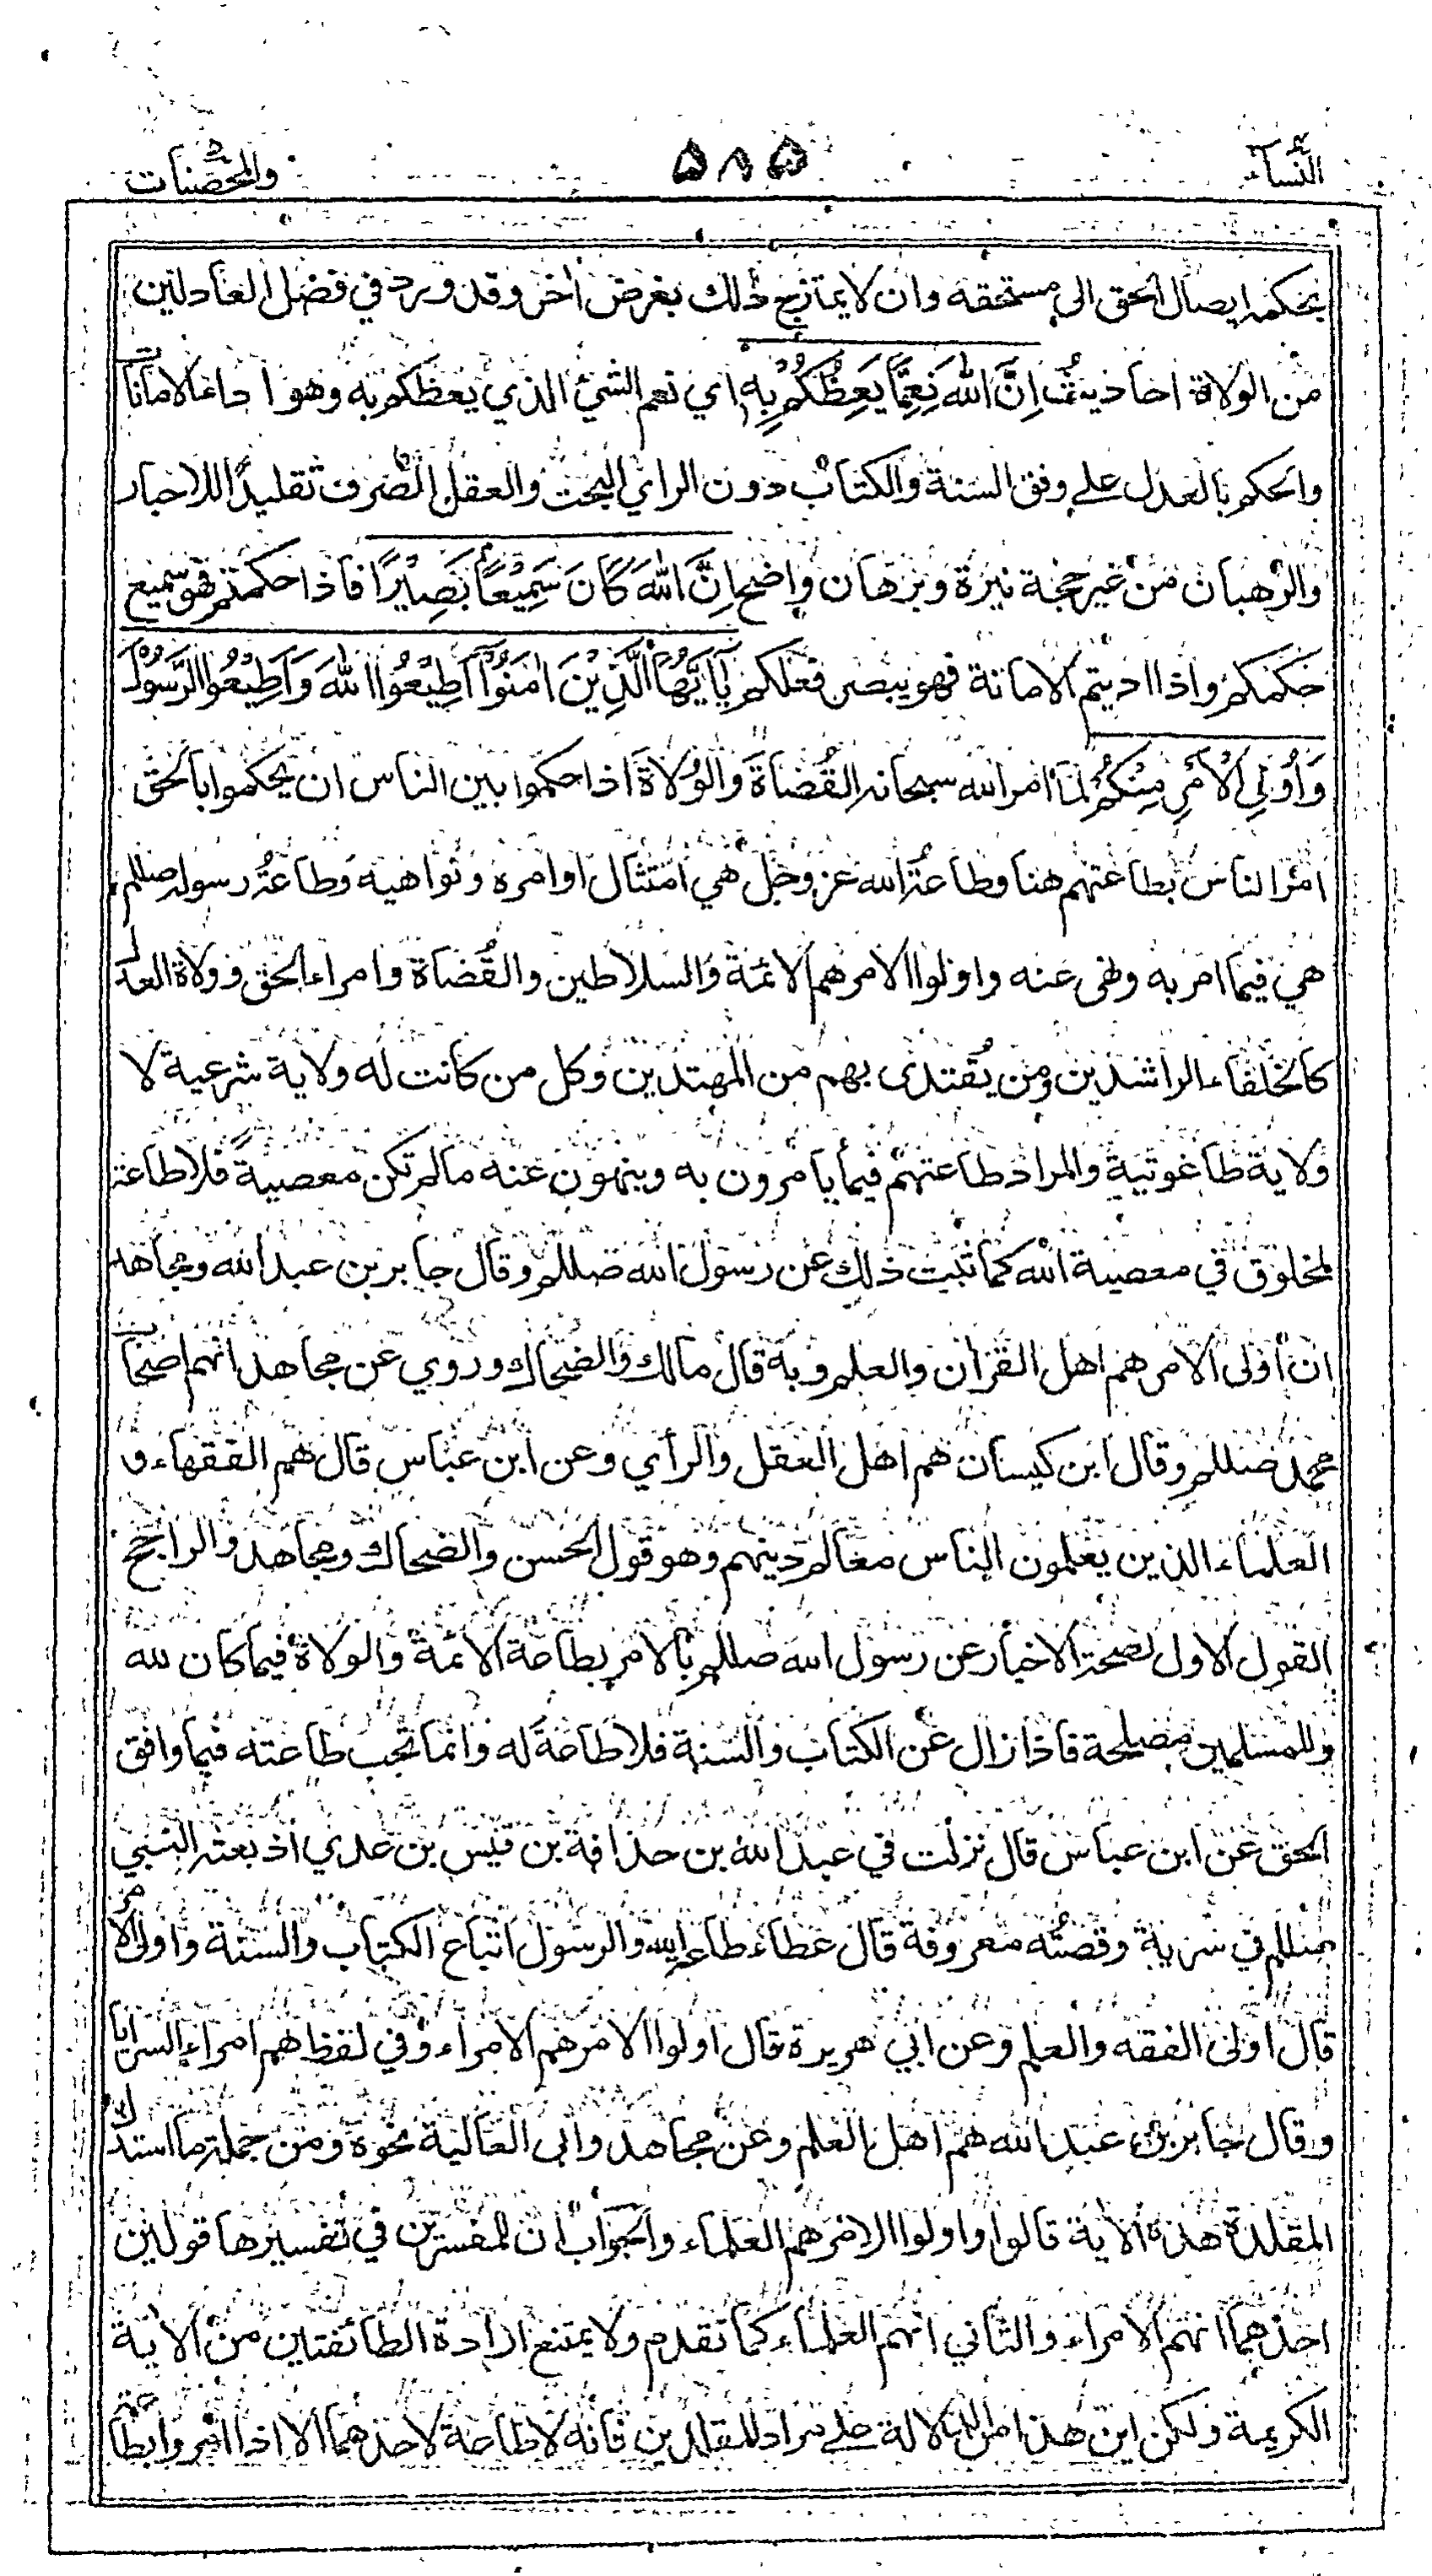 النسآء ۵۸۵ والمحصنات
بحكمه ايصال الحق الى مستحقه وان لا يمتازج ذلك بغرض اخر وقد ورد في فضل العادلين
من الولاة احاديث اِنَّ اللهَ نِعِمَّا يَعِظُكُمْ بِهٖ اي نعم الشئ الذي يعظكم به وهو اداء الامانات
والحكم بالعدل على وفق السنة والكتاب دون الراي البحت والعقل الصرف تقليدًا للاحبار
والرهبان من غير حجة نيرة وبرهان واضح اِنَّ اللهَ كَانَ سَمِيْعًا بَصِيْرًا فاذا حكمتم فهو سميع
حكمكم واذا اديتم الامانة فهو يبصر فعلكم يَآ اَيُّهَا الَّذِيْنَ اٰمَنُوْٓا اَطِيْعُوا اللهَ وَاَطِيْعُوا الرَّسُوْلَ
وَاُولِي الْاَمْرِ مِنْكُمْ لما امر الله سبحانه القُضَاةَ والوُلاةَ اذا حكموا بين الناس ان يحكموا بالحق
امر الناس بطاعتهم هنا وطاعةُ الله عز وجل هي امتثال اوامره ونواهيه وطاعةُ رسوله صللم
هي فيما امر به ونهى عنه واولوا الامر هم الائمة والسلاطين والقُضاة وامراء الحق وولاة العدل
كالخلفاء الراشدين ومن يُقتدى بهم من المهتدين وكل من كانت له ولاية شرعية لا
ولاية طاغوتية والمراد طاعتهم فيما يأمرون به وينهون عنه مالم تكن معصيةً فلا طاعة
لمخلوق في معصية الله كما ثبت ذلك عن رسول الله صللم وقال جابر بن عبد الله ومجاهد
ان اولى الامر هم اهل القران والعلم وبه قال مالك والضحاك وروي عن مجاهد انهم اصحاب
محمد صللم وقال ابن كيسان هم اهل العقل والرأي وعن ابن عباس قال هم الفقهاء و
العلماء الذين يعلمون الناس معالم دينهم وهو قول الحسن والضحاك ومجاهد والراجح
القول الاول لصحة الاخبار عن رسول الله صللم بالامر بطاعة الائمة والولاة فيما كان لله
وللمسلمين مصلحة فاذا زال عن الكتاب والسنة فلا طاعةَ له وانما تجب طاعته فيما وافق
الحق عن ابن عباس قال نزلت في عبد الله بن حذافة بن قيس بن عدي اذ بعثه النبي
صللم في سرية وقصتُه معروفة قال عطاء طاعة الله والرسول اتباع الكتاب والسنة واولى الامر
قال اولى الفقه والعلم وعن ابي هريرة قال اولوا الامر هم الامراء وفي لفظ هم امراء السرايا
وقال جابر بن عبد الله هم اهل العلم وعن مجاهد وابى العالية نحوه ومن جملة ما استدل
المقلدة هذه الأية قالوا واولوا الامر هم العلماء والجواب ان للمفسرين في تفسيرها قولين
احدهما انهم الامراء والثاني انهم العلماء كما تقدم ولا يمتنع ارادة الطائفتين من الأية
الكريمة ولكن اين هذا من الدلالة على مراد المقلدين فانه لا طاعة لاحدهما الا اذا امروا بطاعة